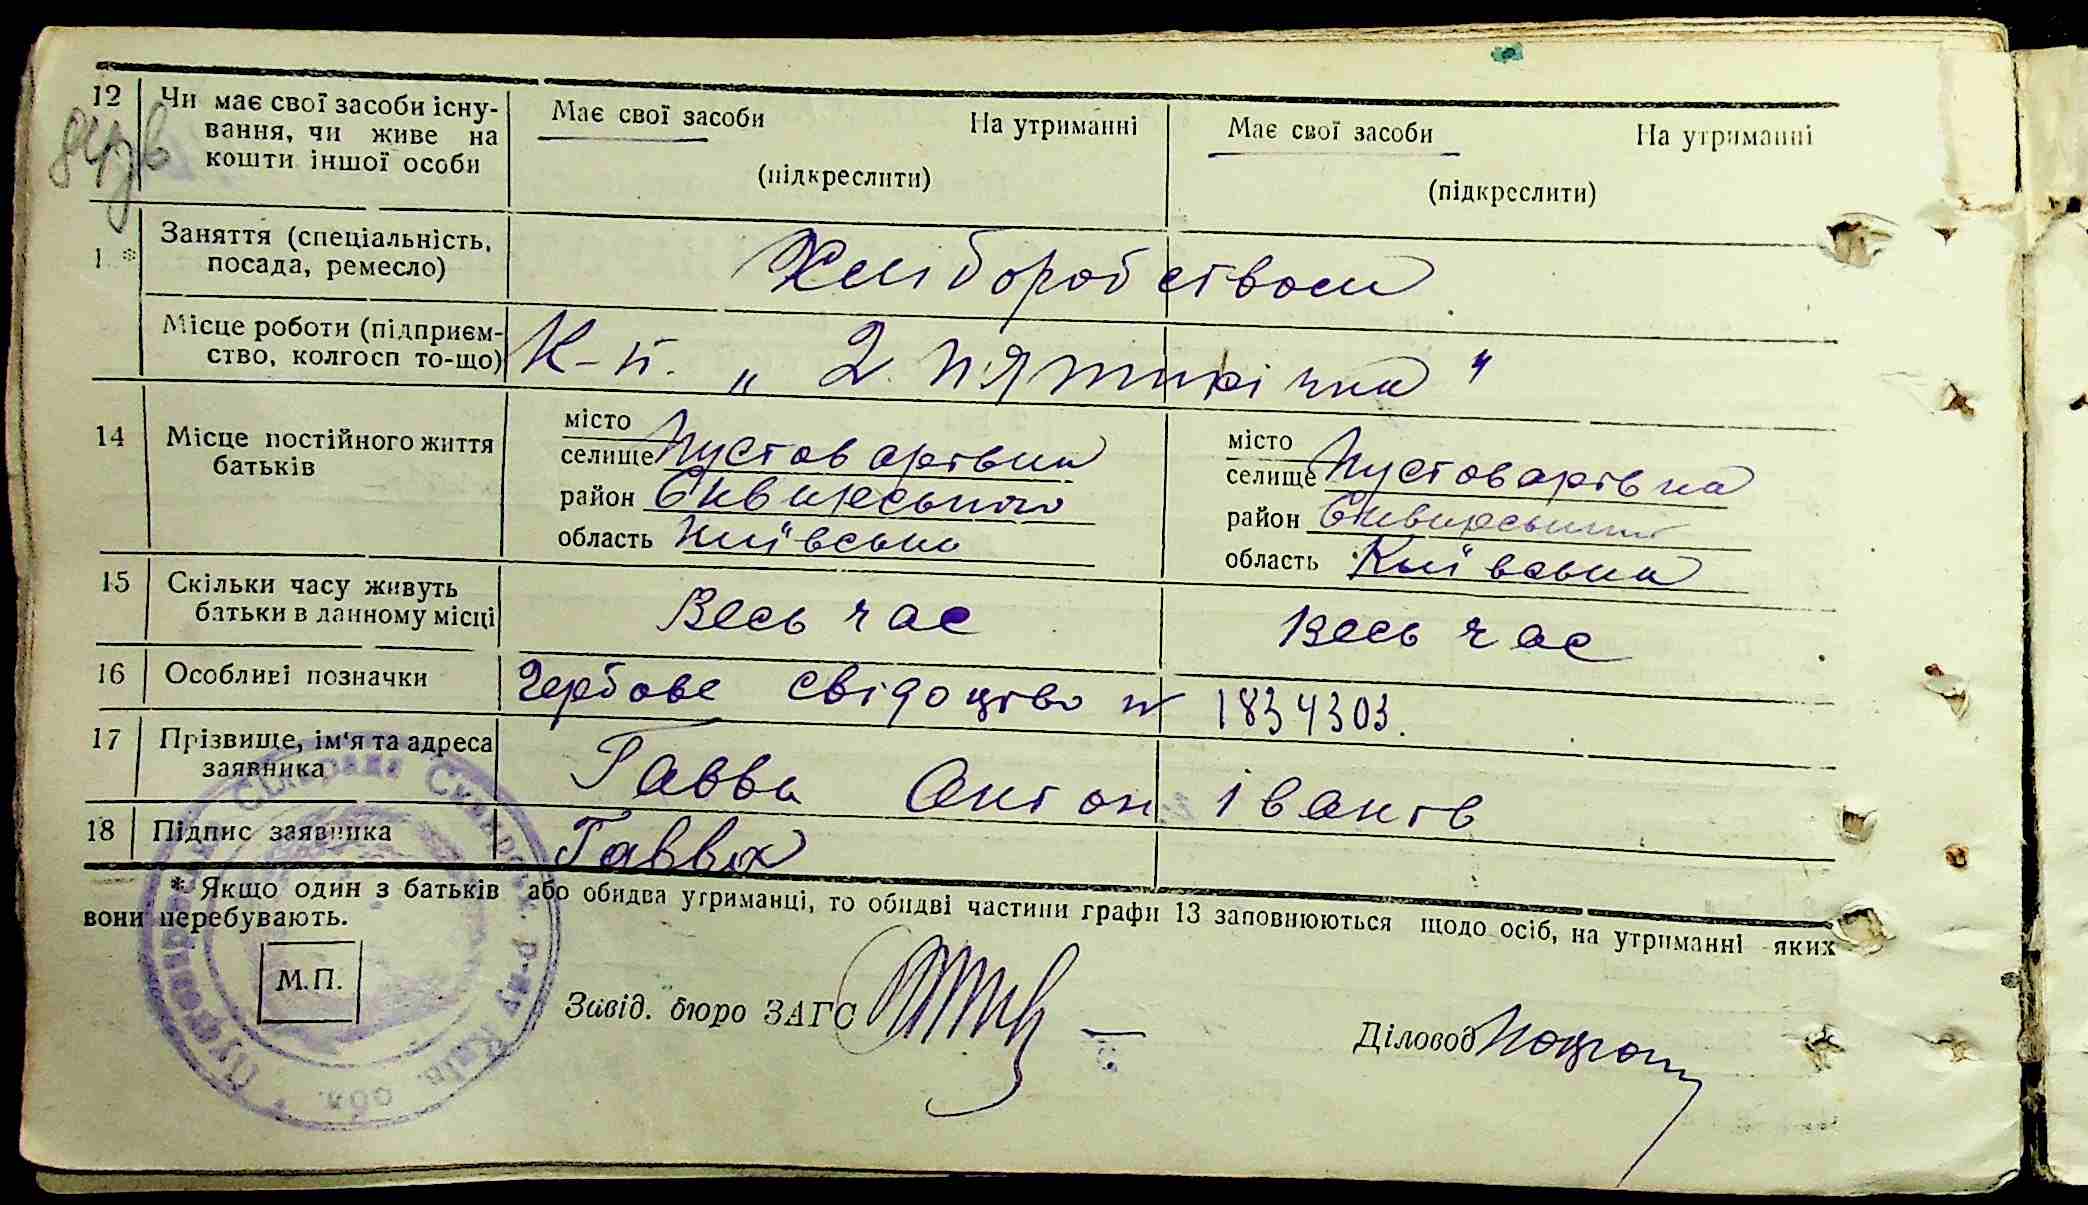 12 Чи має свої засоби існу-
вання, чи живе на
кошти іншої особи
Має свої засоби На утриманні
(підкреслити)
Має свої засоби На утриманні
(підкреслити)
1 * Заняття (спеціальність,
посада, ремесло)
Хліборобством
Місце роботи (підприєм-
ство, колгосп то-що)
К-п. „ 2 п'ятирічка "
14 Місце постійного життя
батьків
місто
селище Пустоварівка
район Сквирського
область Київська
місто
селище Пустоварівка
район Сквирський
область Київська
15 Скільки часу живуть
батьки в данному місці
Весь час
Весь час
16 Особливі позначки
Гербове свідоцтво № 1834303.
17 Прізвище, ім'я та адреса
заявника
Гавва Антон Іванів
18 Підпис заявника
Гавва
* Якщо один з батьків або обидва утриманці, то обидві частини графи 13 заповнюються щодо осіб, на утриманні яких
вони перебувають.
М.П.
Завід. бюро ЗАГС
Діловод